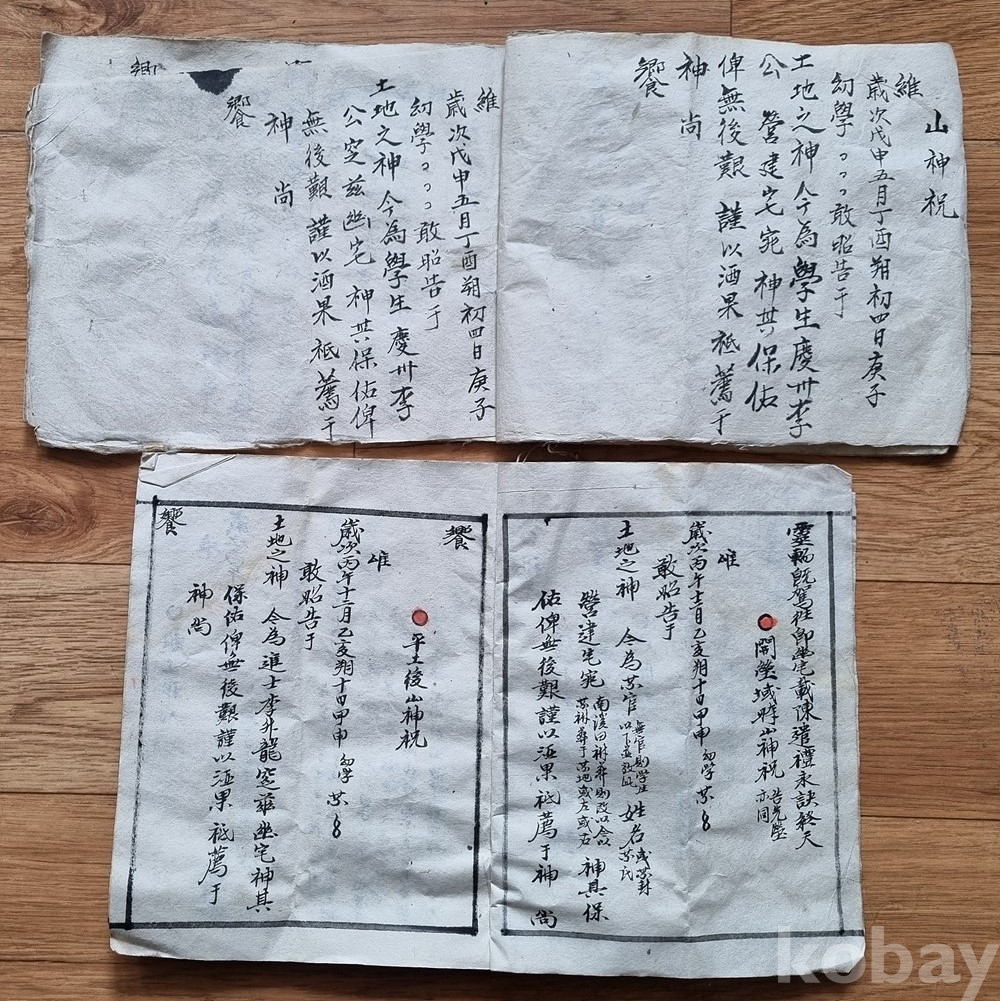 山神祝
維
歲次戊申五月丁酉朔初四日庚子
幼學 敢昭告于
土地之神 今為學生慶州李
公 營建宅宛 神其保佑
俾無後艱 謹以酒果祗薦于
神 尚
饗
維
歲次戊申五月丁酉朔初四日庚子
幼學 敢昭告于
土地之神 今為學生慶州李
公窆玆幽宅 神其保佑俾
無後艱 謹以酒果祗薦于
神 尚
饗
靈輀旣駕往卽幽宅載陳遣禮永訣終天
開塋域時山神祝 告先塋亦同
維
歲次丙午十二月乙亥朔十日甲申 幼學 某
敢昭告于
土地之神 今為某官 姓名 或某封某氏
營建宅宛 神其保
佑俾無後艱謹以酒果祗薦于神 尚
饗
平土後山神祝
維
歲次丙午十二月乙亥朔十日甲申 幼學 某
敢昭告于
土地之神 今為進士李井龍窆玆幽宅神其
保佑俾無後艱謹以酒果祗薦于
神尚
饗
kobay